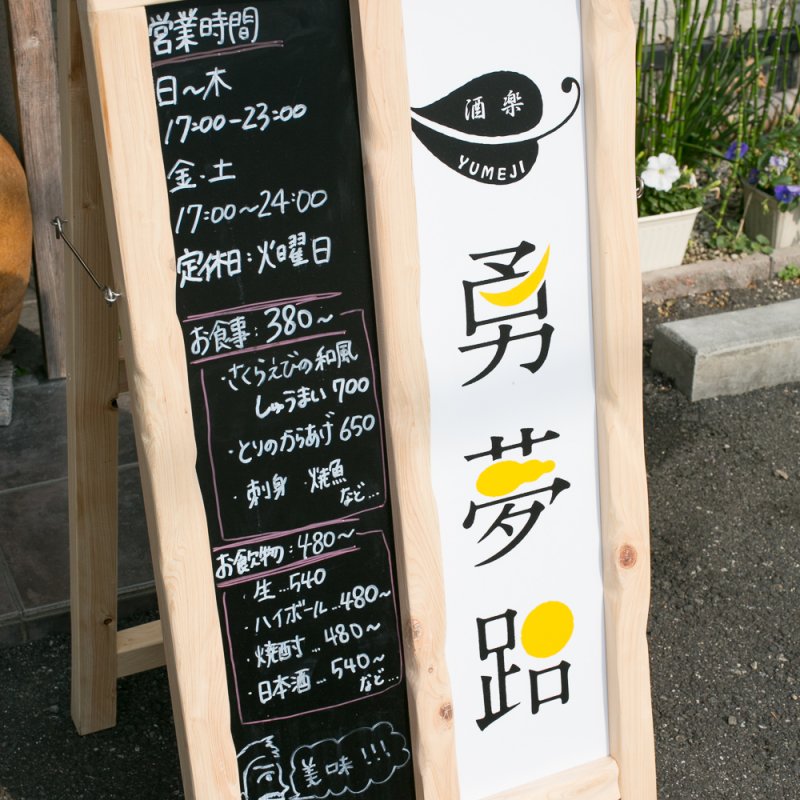 営業時間
日〜木
17:00-23:00
金・土
17:00〜24:00
定休日:火曜日
お食事:380〜
・さくらえびの和風
しゅうまい700
・とりのからあげ650
・刺身 ・焼魚
など…
お飲物:480〜
・生…540
・ハイボール…480〜
・焼酎…480〜
・日本酒…540〜
など…
美味!!!
酒楽
YUMEJI
勇
夢
路